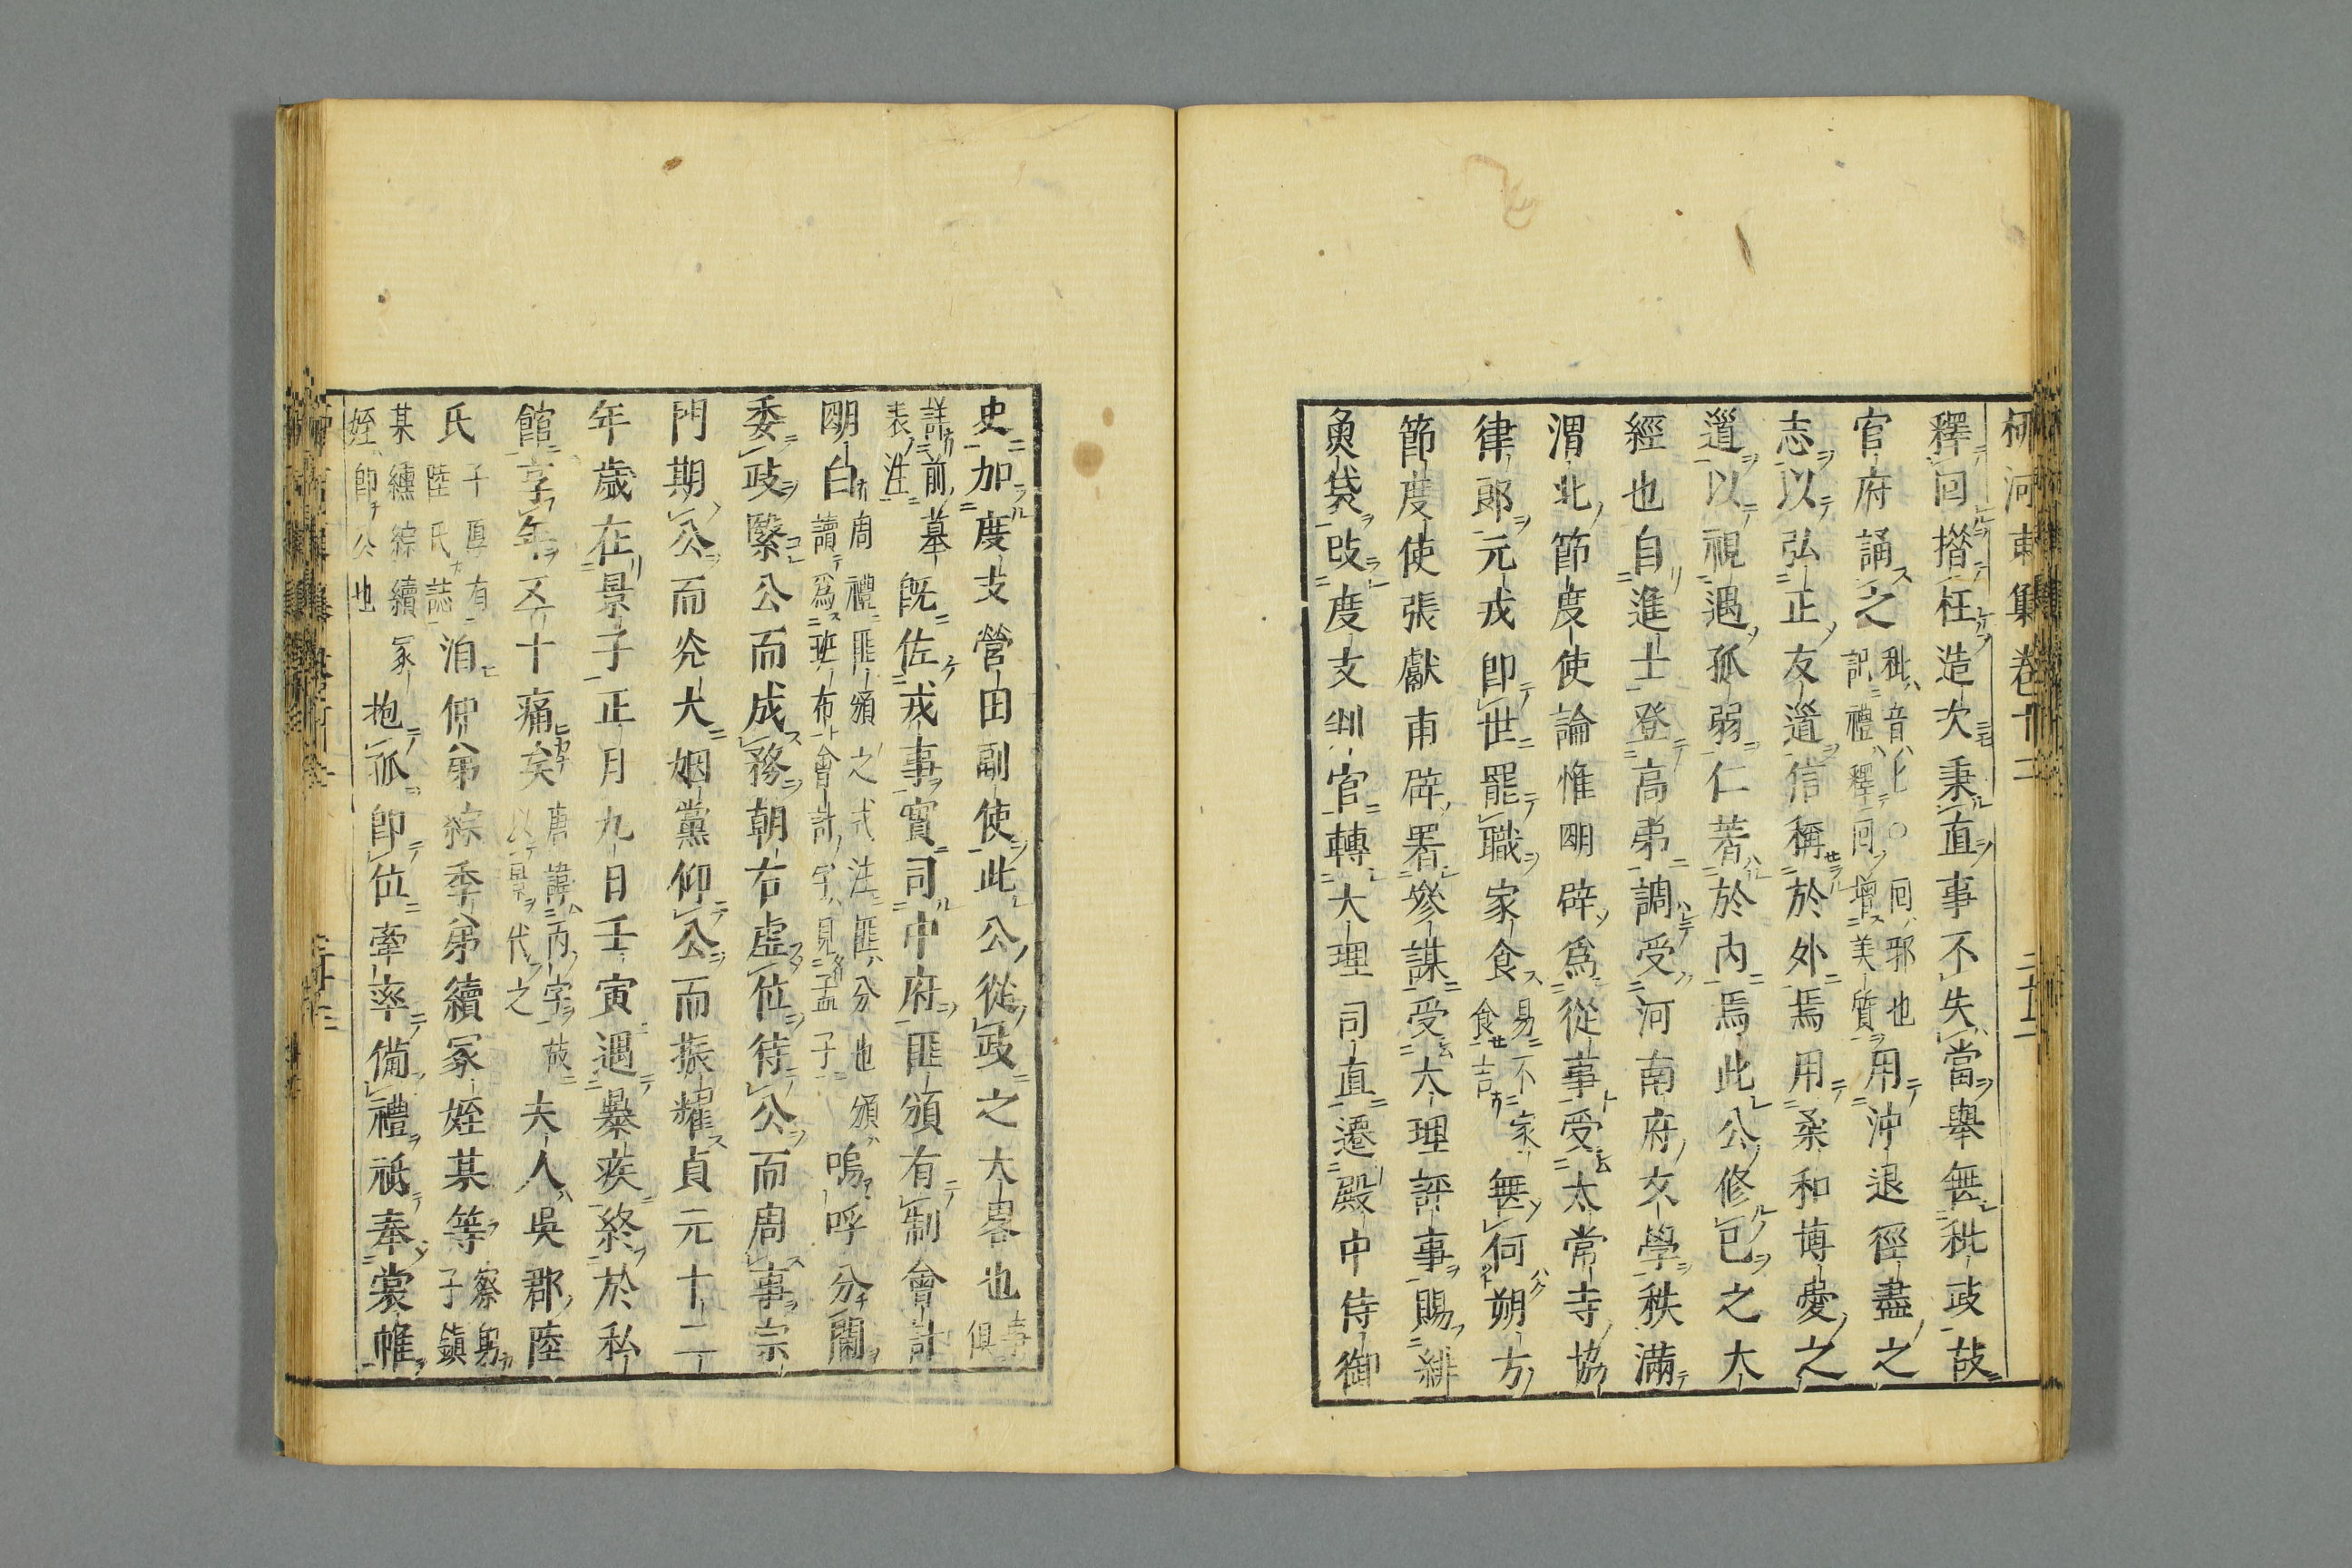 柳河東集卷十二 二十二
釋回措枉造次秉直事不失當舉無秕政故
官府誦之秕音匕○回邪也記禮釋回增美質用沖退徑盡之
志以弘正友道信稱於外焉用柔和博愛之
道以視遇孤弱仁著於內焉此公修己之大
經也自進士登高弟調受河南府文學秩滿
渭北節度使論惟明辟爲從事受太常寺協
律郎元戎卽世罷職家食易不家食吉無何朔方
節度使張獻甫辟署參謀受大理評事賜緋
魚袋改度支判官轉大理司直遷殿中侍御
史加度支營田副使此公從政之大略也事俱
詳前墓表注旣佐戎事實司中府匪頒有制會計
明白周禮匪頒之式注匪分也頒讀爲班布會計字見孟子嗚呼分閫
委政繄公而成務朝右虛位待公而周事宗
門期公而光大姻黨仰公而振耀貞元十二
年歲在景子正月九日壬寅遇暴疾終於私
館享年五十痛矣唐諱丙字故以景代之夫人吳郡陸
氏子厚有陸氏誌洎仲弟綜季弟續冢姪某等察躬子鎮
某纁綜續冢姪卽公也抱孤卽位牽率備禮祇奉裳帷